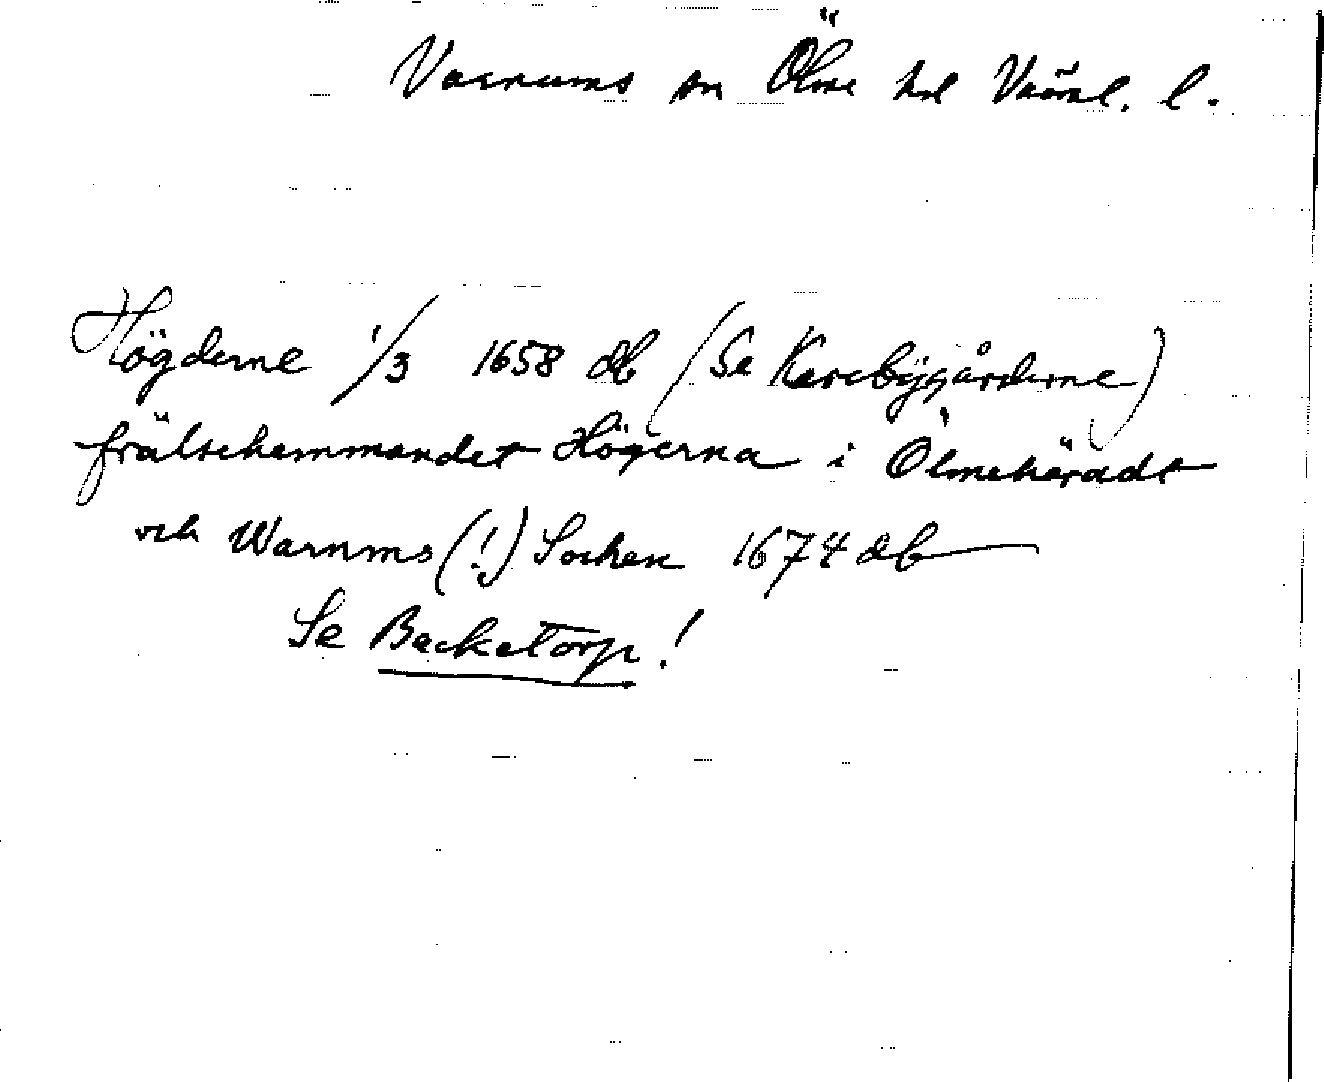 Varnums sn Ölme hd Värml. l.
Högderne 1/3 1658 db (Se Karebÿgårderne)
frälsehemmandet Högerna i Ölmehäradt
och Warnms (!) Sochen 1674 db
Se Backetorp!